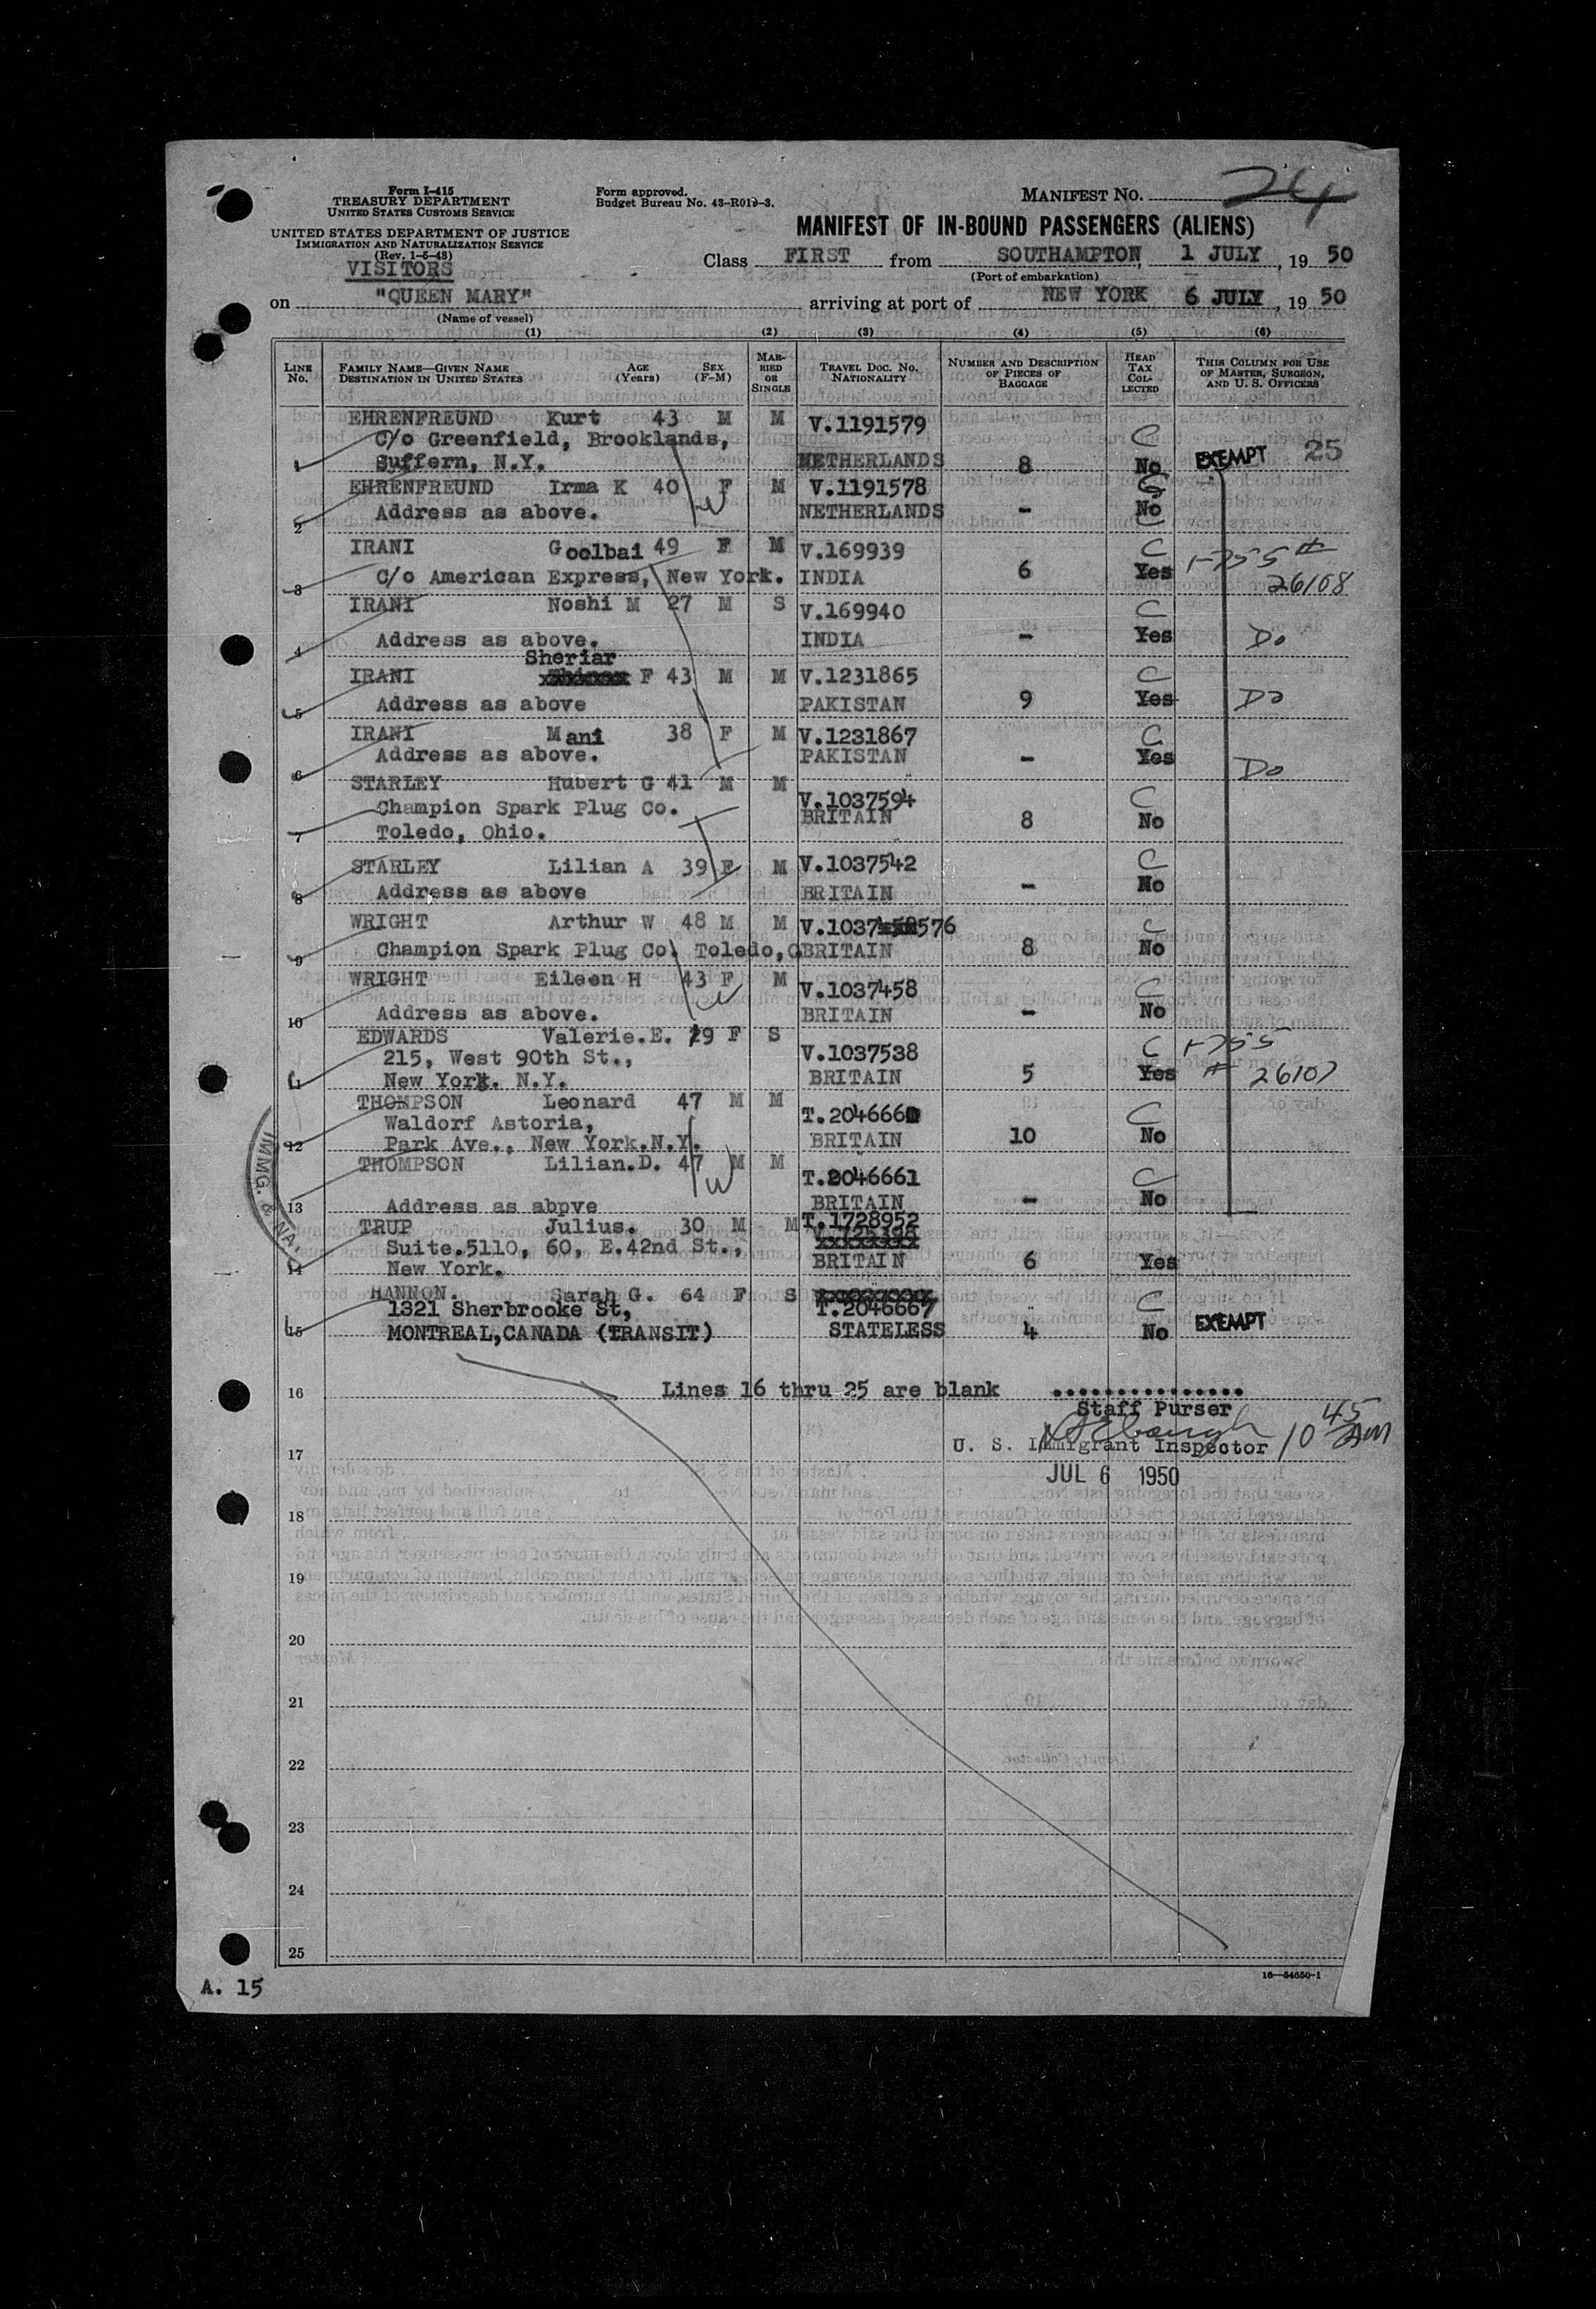 Form I-415
TREASURY DEPARTMENT
UNITED STATES CUSTOMS SERVICE
UNITED STATES DEPARTMENT OF JUSTICE
IMMIGRATION AND NATURALIZATION SERVICE
(Rev. 1-5-48)
VISITORS
Form approved.
Budget Bureau No. 43-R019-3.
MANIFEST NO. 24
MANIFEST OF IN-BOUND PASSENGERS (ALIENS)
Class FIRST from SOUTHAMPTON, 1 JULY, 19 50
(Port of embarkation)
on "QUEEN MARY" arriving at port of NEW YORK 6 JULY, 19 50
(Name of vessel)
(1) (2) (3) (4) (5) (6)
LINE No. FAMILY NAME—GIVEN NAME DESTINATION IN UNITED STATES AGE (Years) SEX (F-M) MARRIED OR SINGLE TRAVEL DOC. NO. NATIONALITY NUMBER AND DESCRIPTION OF PIECES OF BAGGAGE HEAD TAX COLLECTED THIS COLUMN FOR USE OF MASTER, SURGEON, AND U. S. OFFICERS
EHRENFREUND Kurt 43 M M V.1191579
C/o Greenfield, Brooklands, C
1 Suffern, N.Y. NETHERLANDS 8 No EXEMPT 25
EHRENFREUND Irma K 40 F M V.1191578 C
2 Address as above. NETHERLANDS - No
IRANI Goolbai 49 F M V.169939 C I-755 #
3 C/o American Express, New York. INDIA 6 Yes 26108
IRANI Noshi M 27 M S V.169940 C
4 Address as above. INDIA - Yes Do
Sheriar
IRANI F 43 M M V.1231865 C
5 Address as above PAKISTAN 9 Yes Do
IRANI Mani 38 F M V.1231867 C
6 Address as above. PAKISTAN - Yes Do
STARLEY Hubert G 41 M M
Champion Spark Plug Co. V.1037594 C
7 Toledo, Ohio. BRITAIN 8 No
STARLEY Lilian A 39 F M V.1037542 C
8 Address as above BRITAIN - No
WRIGHT Arthur W 48 M M V.1037576 C
9 Champion Spark Plug Co. Toledo, O. BRITAIN 8 No
WRIGHT Eileen H 43 F M V.1037458 C
10 Address as above. BRITAIN - No
EDWARDS Valerie.E. 29 F S
215, West 90th St., V.1037538 C I-755
11 New York. N.Y. BRITAIN 5 Yes # 26107
THOMPSON Leonard 47 M M
Waldorf Astoria, T.2046660 C
12 Park Ave., New York.N.Y. BRITAIN 10 No
THOMPSON Lilian.D. 47 M M
T.2046661 C
13 Address as abpve BRITAIN - No
TRUP Julius. 30 M M T.1728952
Suite.5110, 60, E.42nd St.,
14 New York. BRITAIN 6 Yes
HANNON. Sarah G. 64 F S
1321 Sherbrooke St, T.2046667 C
15 MONTREAL, CANADA (TRANSIT) STATELESS 4 No EXEMPT
IMMG. & NA.
16 Lines 16 thru 25 are blank ...............
Staff Purser
17 U. S. Immigrant Inspector 10 45 AM
JUL 6 1950
18
19
20
21
22
23
24
25
16—54650-1
A. 15